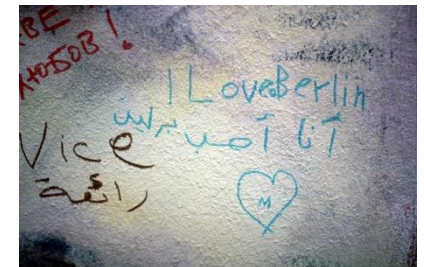 ЛЮБОВ!
I LoveBerlin
أنا أحب برلين
Vice
رائعة
M